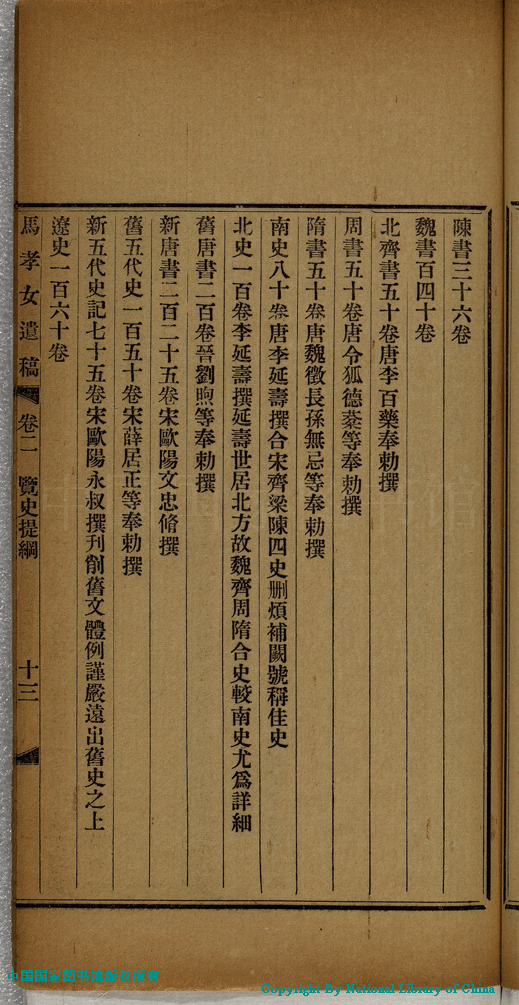 陳書三十六卷
魏書百四十卷
北齊書五十卷唐李百藥奉勅撰
周書五十卷唐令狐德棻等奉勅撰
隋書五十卷唐魏徵長孫無忌等奉勅撰
南史八十卷唐李延壽撰合宋齊梁陳四史删煩補闕號稱佳史
北史一百卷李延壽撰延壽世居北方故魏齊周隋合史較南史尤爲詳細
舊唐書二百卷晉劉煦等奉勅撰
新唐書二百二十五卷宋歐陽文忠脩撰
舊五代史一百五十卷宋薛居正等奉勅撰
新五代史記七十五卷宋歐陽永叔撰刊削舊文體例謹嚴遠出舊史之上
遼史一百六十卷
馬孝女遺稿 卷二 覽史提綱 十三
中国国家图书馆版权所有
Copyright By National Library of China